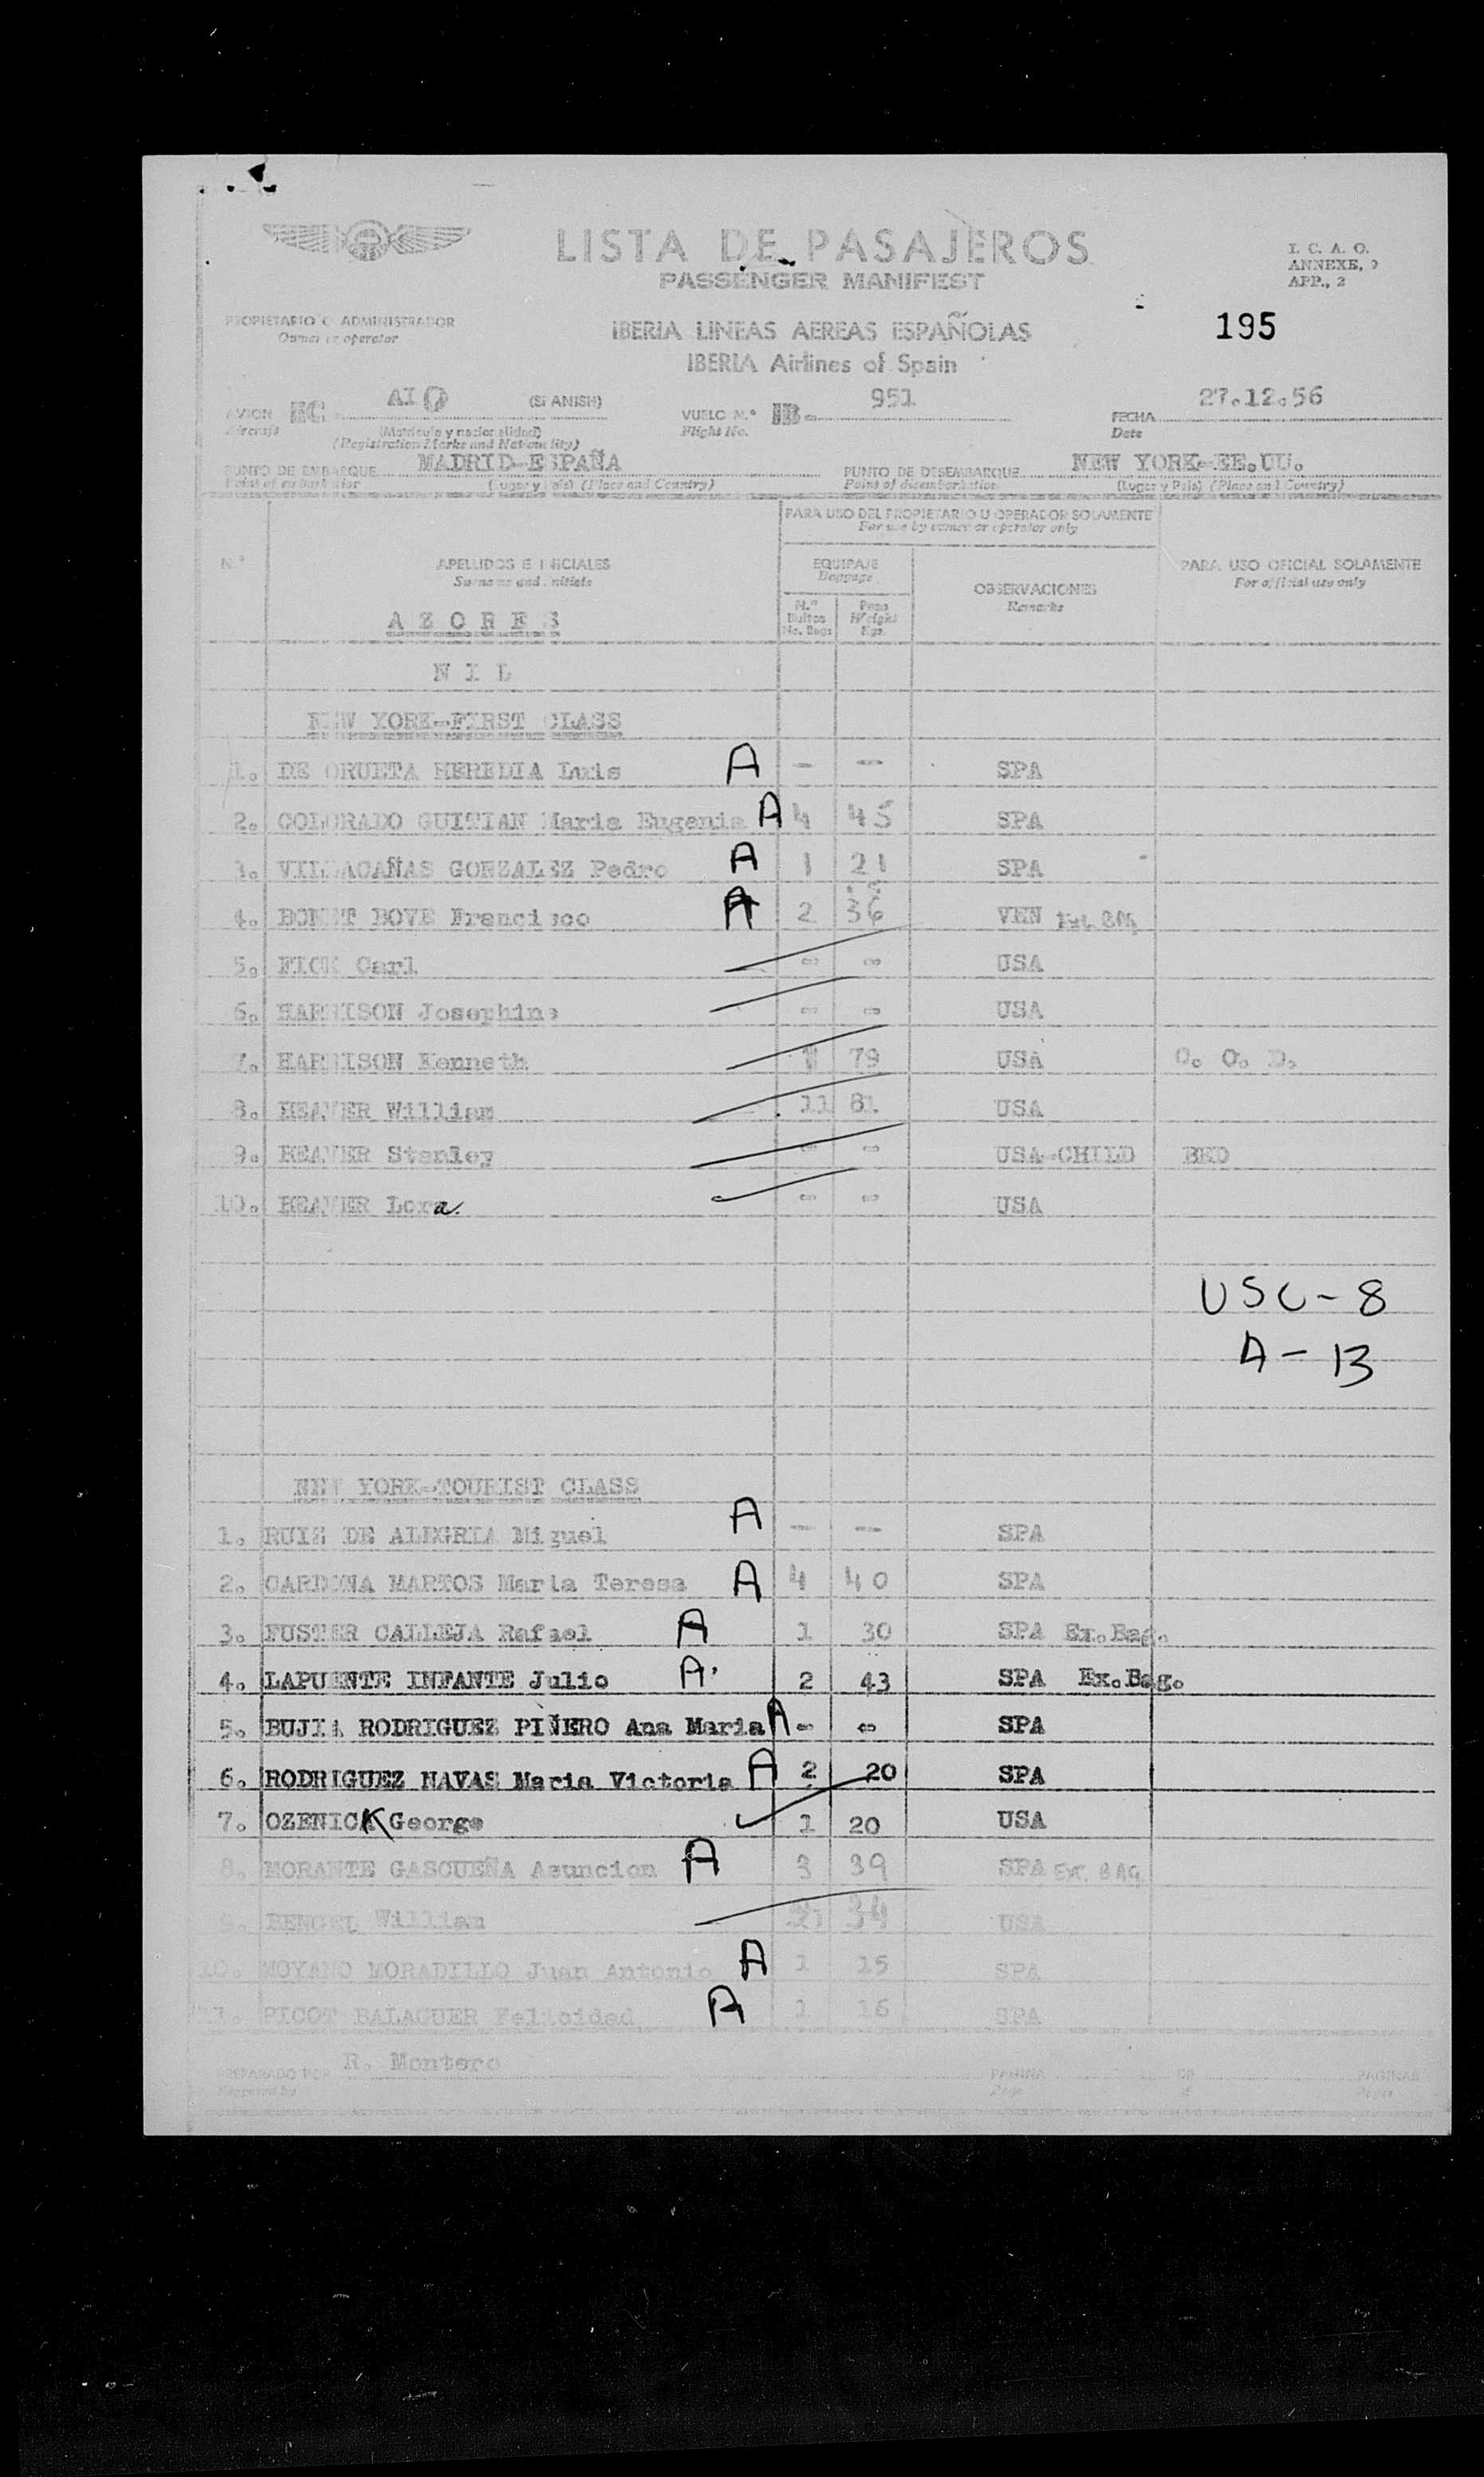 LISTA DE PASAJEROS
PASSENGER MANIFEST
I. C. A. O.
ANNEXE, 9
APP., 2
PROPIETARIO O ADMINISTRADOR
Owner or operator
IBERIA LINEAS AEREAS ESPAÑOLAS
IBERIA Airlines of Spain
195
AVION EC - AIO (SPANISH)
Aircraft (Matrícula y nacionalidad)
(Registration Marks and Nationality)
VUELO N.º IB- 951
Flight No.
FECHA 27.12.56
Date
PUNTO DE EMBARQUE MADRID-ESPAÑA
Point of embarkation (Lugar y País) (Place and Country)
PUNTO DE DESEMBARQUE NEW YORK-EE.UU.
Point of disembarkation (Lugar y País) (Place and Country)
PARA USO DEL PROPIETARIO U OPERADOR SOLAMENTE
For use by owner or operator only
N.º
APELLIDOS E INICIALES
Surname and initials
EQUIPAJE
Baggage
N.º Bultos
No. Bags
Peso
Weight
Kgs.
OBSERVACIONES
Remarks
PARA USO OFICIAL SOLAMENTE
For official use only
AZORES
NIL
NEW YORK-FIRST CLASS
1. DE ORUETA HEREDIA Luis A - - SPA
2. COLORADO GUITIAN Maria Eugenia A 4 45 SPA
3. VILLACAÑAS GONZALEZ Pedro A 1 21 SPA
4. BONET BOVE Francisco A 2 36 VEN
5. FICK Carl - - USA
6. HARRISON Josephine - - USA
7. HARRISON Kenneth 79 USA
8. HEAVER William 11 81 USA
9. HEAVER Stanley - - USA-CHILD BED
10. HEAVER Lora - - USA
USC-8
A-13
NEW YORK-TOURIST CLASS
1. RUIZ DE ALEGRIA Miguel A - - SPA
2. CARDONA MARTOS Maria Teresa A 4 40 SPA
3. FUSTER CALLEJA Rafael A 1 30 SPA Ex.Bag.
4. LAPUENTE INFANTE Julio A 2 43 SPA Ex.Bag.
5. BUJIA RODRIGUEZ PIÑERO Ana Maria A - - SPA
6. RODRIGUEZ NAVAS Maria Victoria A 2 20 SPA
7. OZENICK George 1 20 USA
8. MORANTE GASCUEÑA Asuncion A 3 39 SPA EX. BAG
9. BENGEL William 34 USA
10. MOYANO MORADILLO Juan Antonio A 1 15 SPA
11. PICOT BALAGUER Felicidad A 1 16 SPA
PREPARADO POR R. Montero
Prepared by
PAGINA DE PAGINAS
Page of Pages